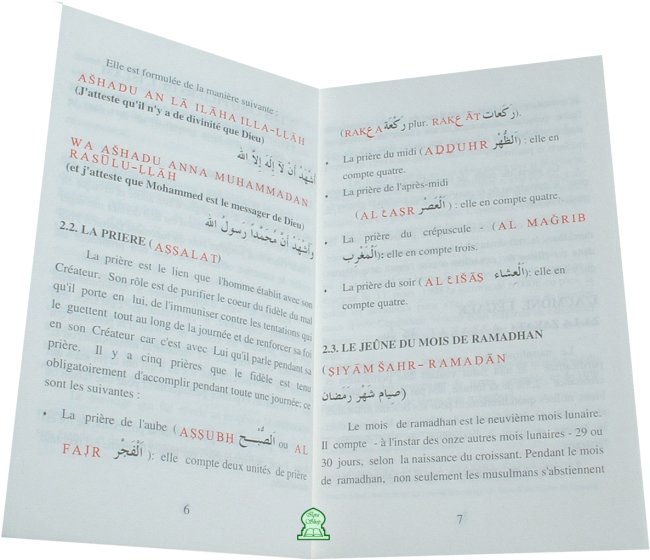 Elle est formulée de la manière suivante :
AŠHADU AN LĀ ILĀHA ILLA-LLĀH
(J'atteste qu'il n'y a de divinité que Dieu)
أَشْهَدُ أَنْ لاَ إِلَهَ إِلاَّ الله
WA AŠHADU ANNA MUHAMMADAN
RASŪLU-LLĀH
(et j'atteste que Mohammed est le messager de Dieu)
وَأَشْهَدُ أَنَّ مُحَمَّداً رسولُ الله
2.2. LA PRIERE (AṢṢALAT)
La prière est le lien que l'homme établit avec son
Créateur. Son rôle est de purifier le coeur du fidèle du mal
qu'il porte en lui, de l'immuniser contre les tentations qui
le guettent tout au long de la journée et de renforcer sa foi
en son Créateur car c'est avec Lui qu'il parle pendant sa
prière. Il y a cinq prières que le fidèle est tenu
obligatoirement d'accomplir pendant toute une journée, ce
sont les suivantes :
• La prière de l'aube (AṢṢUBH الصُّبْح ou AL
FAJR الْفَجْر): elle compte deux unités de prière
6
(RAKعA رَكْعَة plur. RAKعĀT رَكَعات).
• La prière du midi (AḌḌUHR الظُّهْر) : elle en
compte quatre.
• La prière de l'après-midi
(AL عAṢR الْعَصْر) : elle en compte quatre.
• La prière du crépuscule - (AL MAĠRIB
الْمَغْرِب): elle en compte trois.
• La prière du soir (AL عIŠĀṢ الْعِشاء): elle en
compte quatre.
2.3. LE JEÛNE DU MOIS DE RAMADHAN
(ṢIYĀM ŠAHR- RAMAḌĀN
صِيام شَهْر رَمَضَان)
Le mois de ramadhan est le neuvième mois lunaire.
Il compte - à l'instar des onze autres mois lunaires - 29 ou
30 jours, selon la naissance du croissant. Pendant le mois
de ramadhan, non seulement les musulmans s'abstiennent
7
Iqra
Shop